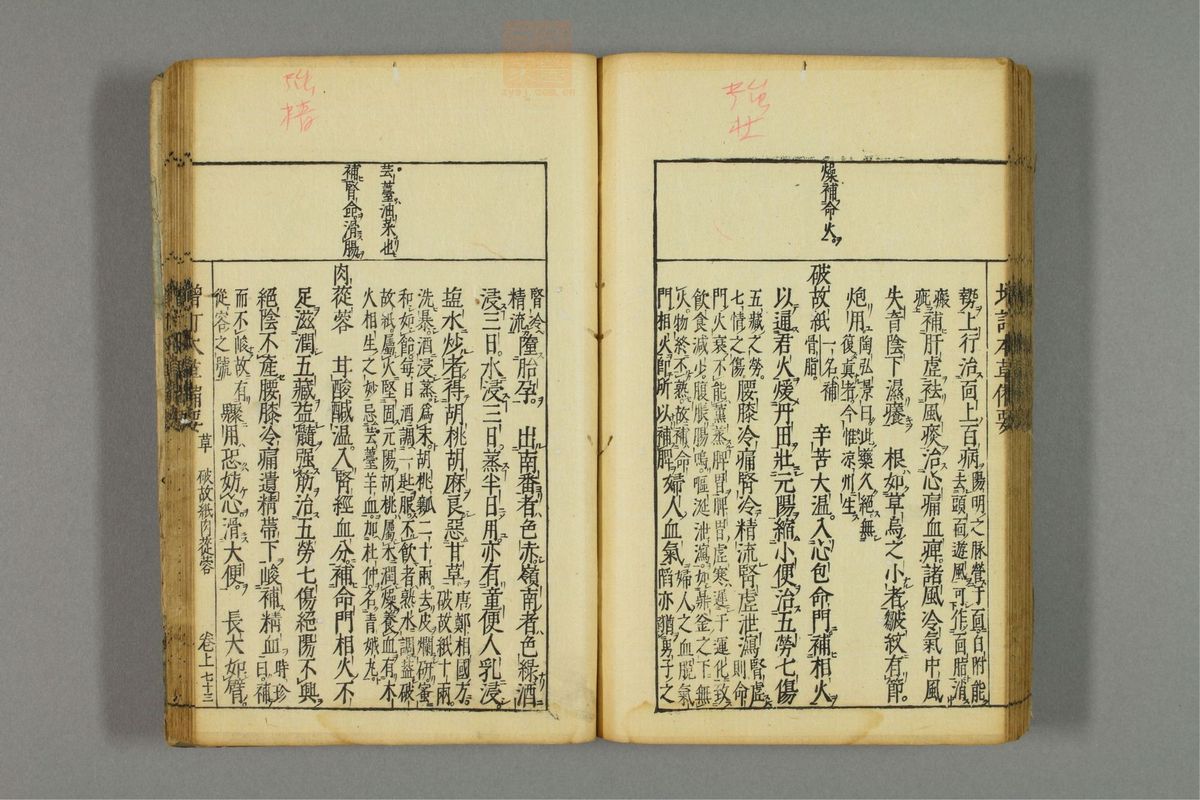 強壯
燥補命火
勢上行治面上百病陽明之脉營于面白附能
去頭面遊風可作面脂消
瘢疵補肝虛祛風痰治心痛血痺諸風冷氣中風
失音陰下濕癢 根如草烏之小者皺紋有節
炮用陶弘景曰此藥久絕無
復真者今惟凉州生
破故紙一名補骨脂 辛苦大温入心包命門補相火
以通君火煖丹田壯元陽縮小便治五勞七傷
五藏之勞
七情之傷腰膝冷痛腎冷精流腎虛泄瀉腎虛則命
門火衰不能薰蒸脾胃脾胃虛寒遲于運化致
飲食減少腹脹腸鳴嘔涎泄瀉如鼎釜之下無
火物終不熟故補命
門相火即所以補脾婦人血氣婦人之血脫氣
陷亦猶男子之
強精
芸薹油菜也
補腎命滑腸
腎冷
精流墮胎孕 出南番者色赤嶺南者色綠酒
浸三日水浸三日蒸半日用亦有童便人乳浸
塩水炒者得胡桃胡麻良惡甘草唐鄭相國方破故紙十兩
洗暴酒浸蒸爲末胡桃瓤二十兩去皮爛研蜜
和如飴每日酒調一匙服不飲者熱水調蓋破
故紙屬火堅固元陽胡桃屬木潤燥養血有木
火相生之妙忌芸薹羊血加杜仲名青娥丸
肉蓯蓉 甘酸鹹温入腎經血分補命門相火不
足滋潤五藏益髓强筋治五勞七傷絕陽不興
絕陰不産腰膝冷痛遺精帶下峻補精血時珍曰補
而不峻故有
從容之號驟用恐妨心滑大便 長大如臂
草 破故紙肉蓯蓉 卷上七十三